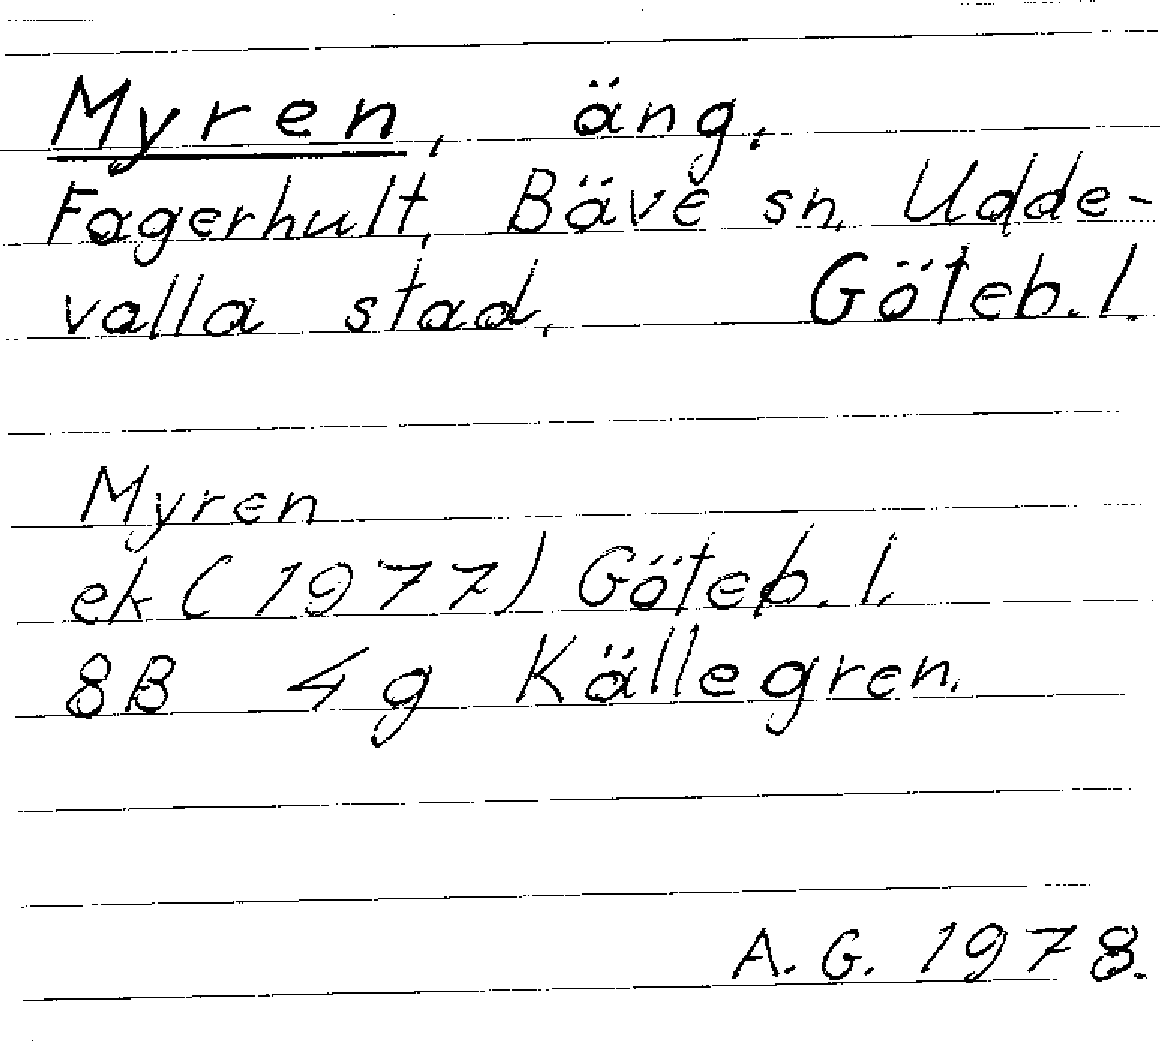 Myren, äng.
Fagerhult, Bäve sn, Udde-
valla stad, Göteb. l.
Myren
ek (1977) Göteb. l.
8B 4g Källegren.
A. G. 1978.